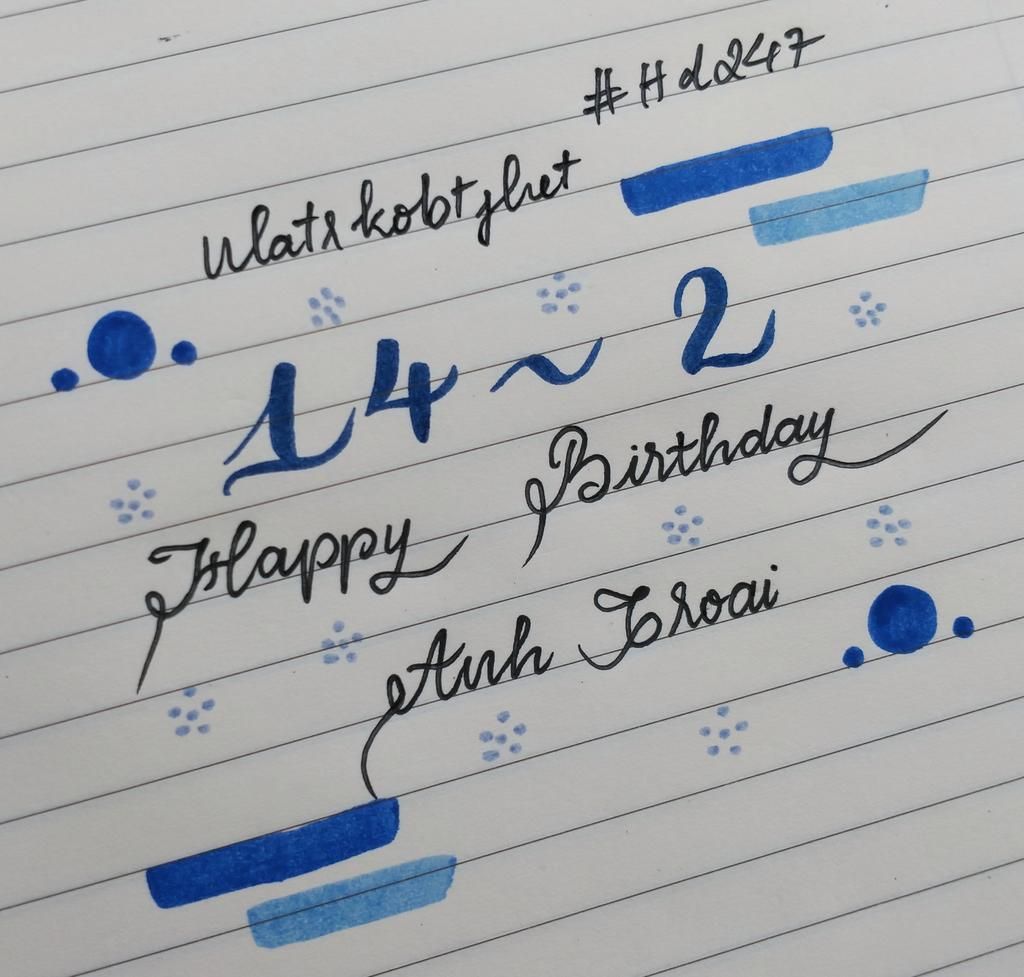 #Hd247
14 ~ 2
Happy Birthday
Anh Troai